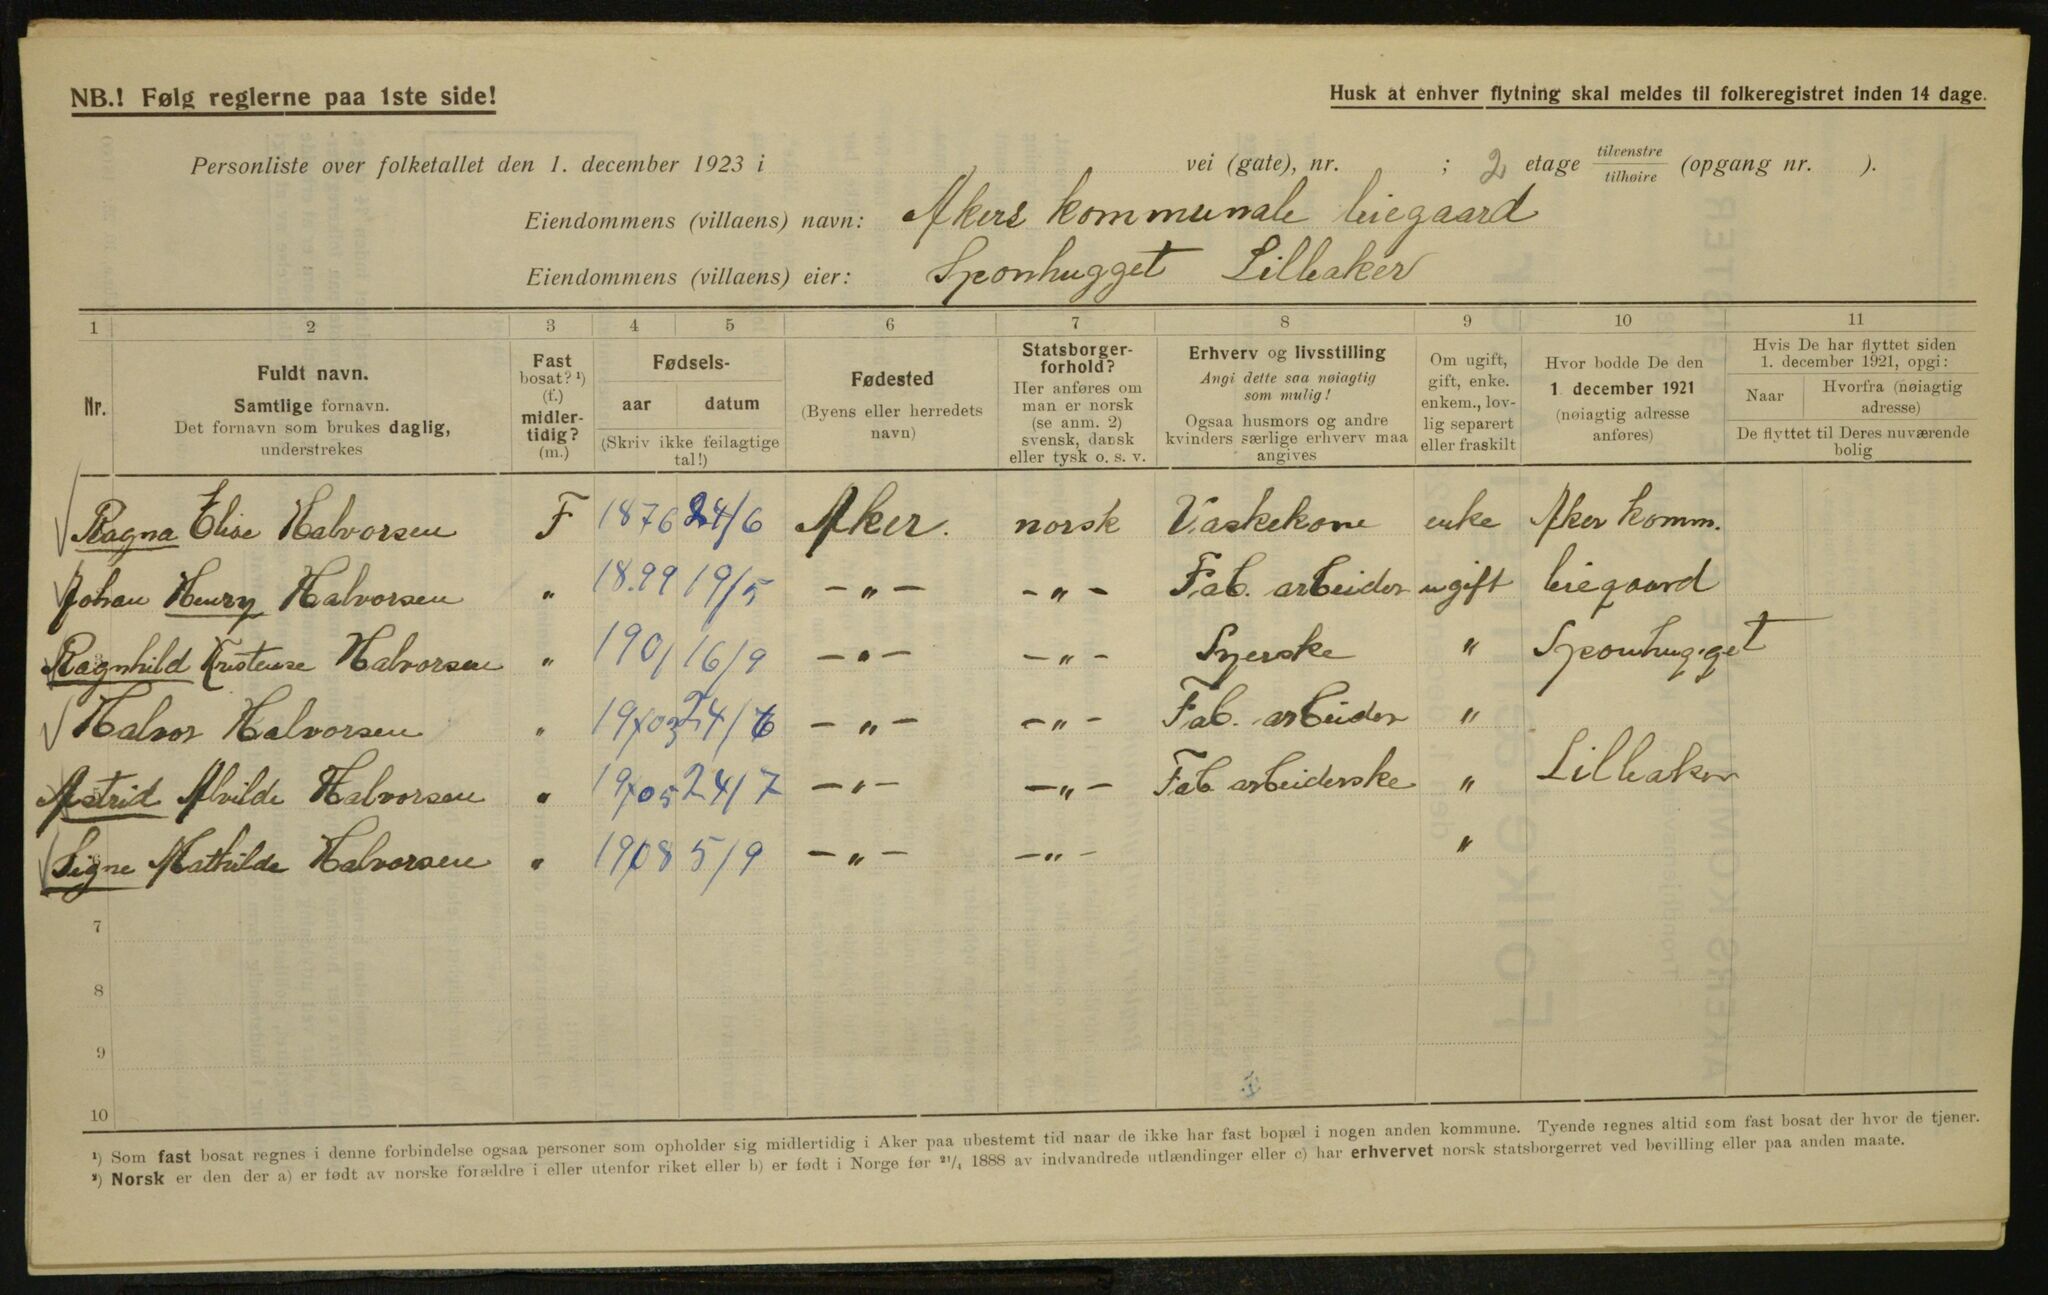 NB.! Følg reglerne paa 1ste side!
Husk at enhver flytning skal meldes til folkeregistret inden 14 dage.
Personliste over folketallet den 1. december 1923 i vei (gate), nr. ; 2 etage tilvenstre / tilhøire (opgang nr. ).
Eiendommens (villaens) navn: Akers kommunale leiegaard
Eiendommens (villaens) eier: Sponhugget Lilleaker
1 2 3 4 5 6 7 8 9 10 11
Nr.
Fuldt navn.
Samtlige fornavn.
Det fornavn som brukes daglig,
understrekes
Fast
bosat? ¹)
(f.)
midler-
tidig?
(m.)
Fødsels-
aar datum
(Skriv ikke feilagtige
tal!)
Fødested
(Byens eller herredets
navn)
Statsborger-
forhold?
Her anføres om
man er norsk
(se anm. 2)
svensk, dansk
eller tysk o. s. v.
Erhverv og livsstilling
Angi dette saa nøiagtig
som mulig!
Ogsaa husmors og andre
kvinders særlige erhverv maa
angives
Om ugift,
gift, enke.
enkem., lov-
lig separert
eller fraskilt
Hvor bodde De den
1 december 1921
(nøiagtig adresse
anføres)
Hvis De har flyttet siden
1. december 1921, opgi:
Naar
Hvorfra (nøiagtig
adresse)
De flyttet til Deres nuværende
bolig
Ragna Elise Halvorsen F 1876 24/6 Aker. norsk Vaskekone enke Aker komm.
Johan Henry Halvorsen " 18.99 19/5 – " – – " – Fab. arbeider ugift leiegaard
Ragnhild Kristense Halvorsen " 1901 16/9 – " – – " – Syerske " Sponhugget
Halvor Halvorsen " 1903 24/6 – " – – " – Fab. arbeider "
Astrid Alvilde Halvorsen " 1905 24/7 – " – – " – Fab. arbeiderske " Lilleaker
Signe Mathilde Halvorsen " 1908 5/9 – " – – " – "
7
8
9
10
¹) Som fast bosat regnes i denne forbindelse ogsaa personer som opholder sig midlertidig i Aker paa ubestemt tid naar de ikke har fast bopæl i nogen anden kommune. Tyende regnes altid som fast bosat der hvor de tjener.
²) Norsk er den der a) er født av norske forældre i eller utenfor riket eller b) er født i Norge før ²¹/₄ 1888 av indvandrede utlændinger eller c) har erhvervet norsk statsborgerret ved bevilling eller paa anden maate.